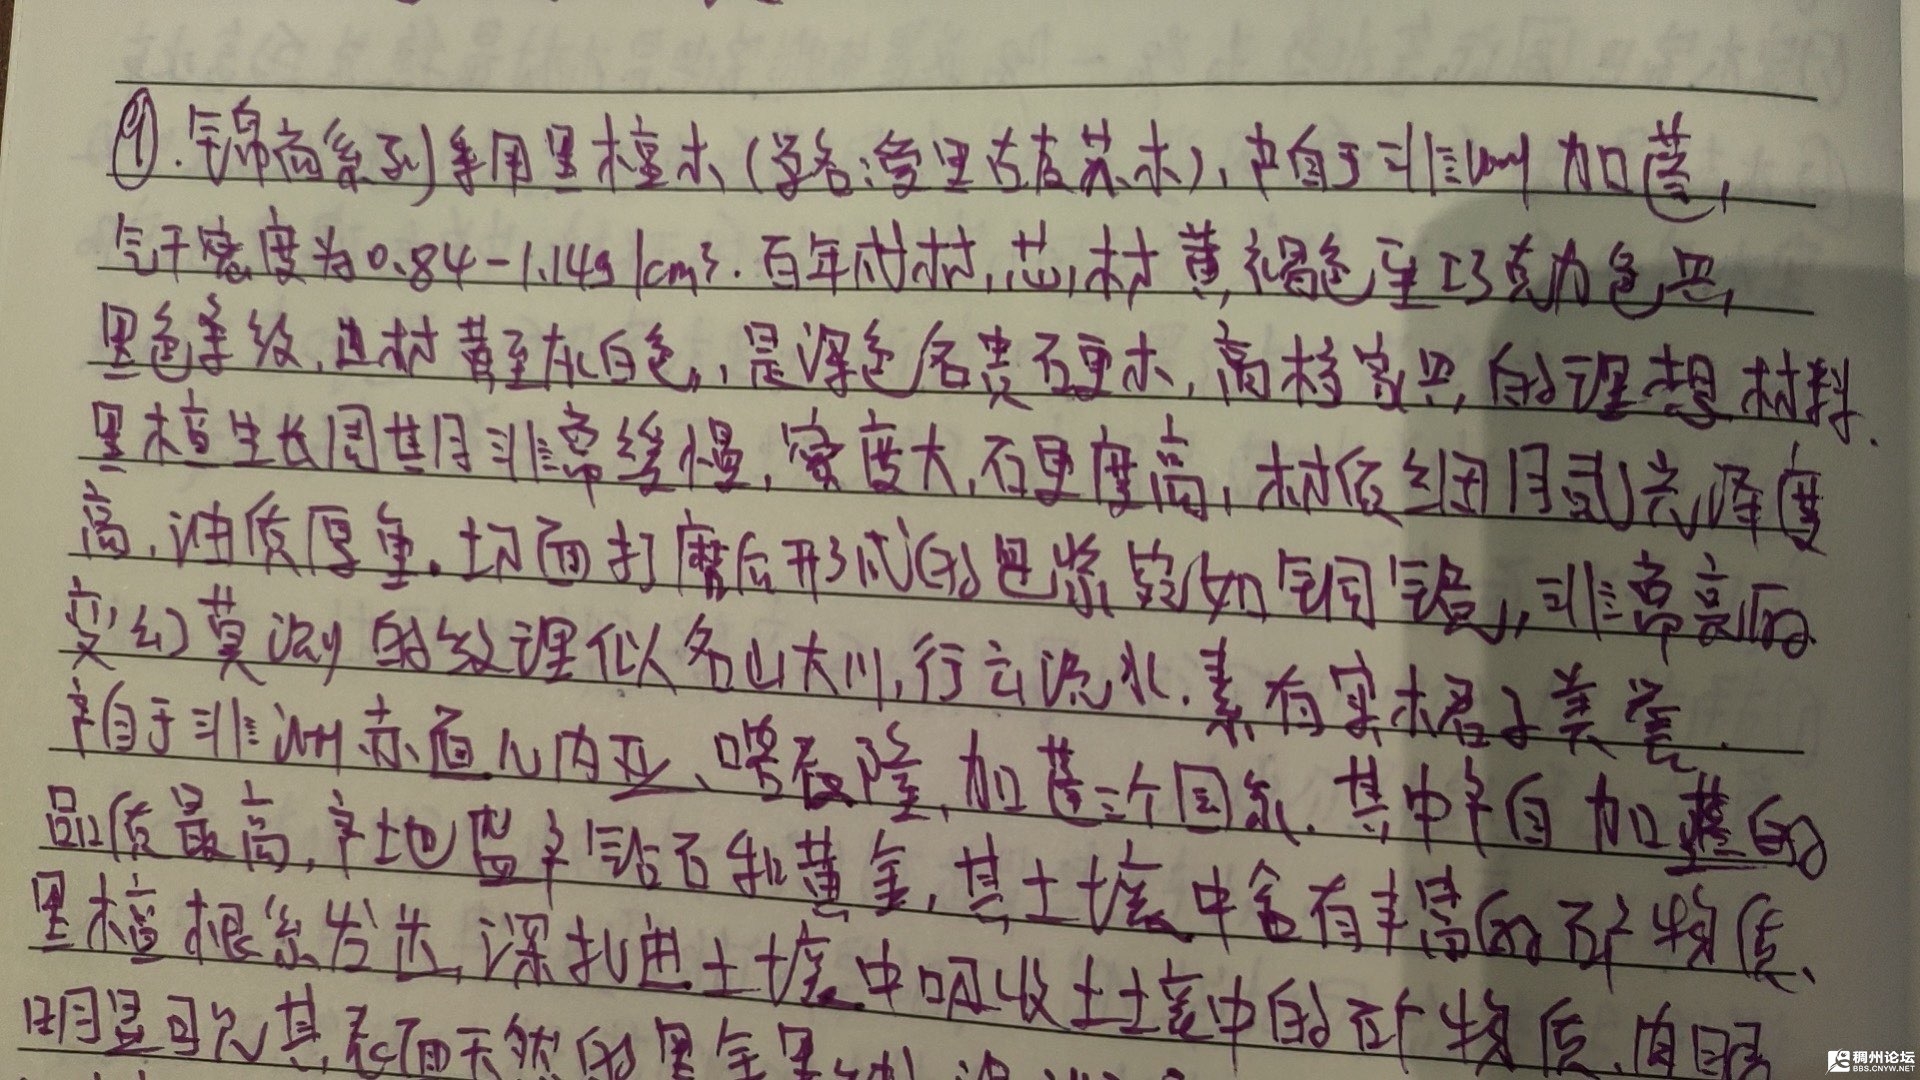 ⑨.锦尚系列采用黑檀木(学名:爱里古夷苏木),产自于非洲加蓬,
气干密度为0.84-1.14g/cm³.百年成材,芯材黄褐色至巧克力色具
黑色条纹,边材黄至灰白色,是深色名贵硬木,高档家具的理想材料.
黑檀生长周期非常缓慢,密度大,硬度高,材质细腻光泽度
高,油质厚重.切面打磨后形成的色紧致如铜镜,非常亮丽
变幻莫测的纹理似名山大川,行云流水.素有实木君子美誉.
产自于非洲赤道几内亚、喀麦隆,加蓬三个国家.其中产自加蓬的
品质最高,产地盛产钻石和黄金,其土壤中含有丰富的矿物质、
黑檀根系发达,深扎进土壤中吸收土壤中的矿物质,肉眼
明显可见其表面天然的黑金
稠州论坛
BBS.CNYW.NET